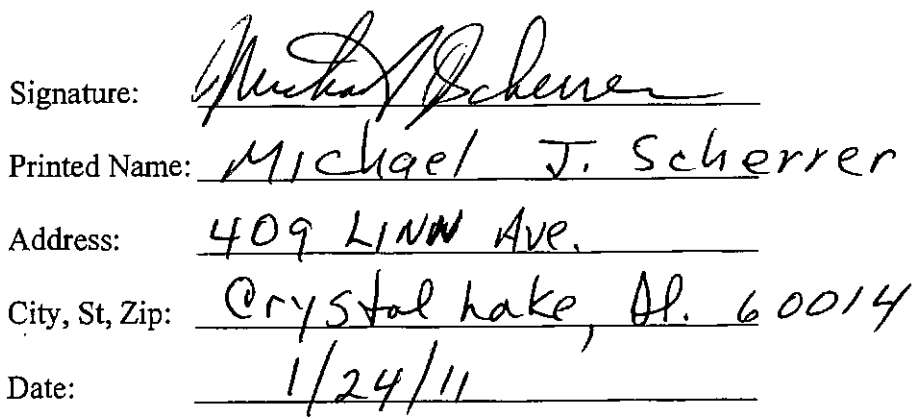 Signature: Michael J Scherrer
Printed Name: Michael J. Scherrer
Address: 409 LINN Ave.
City, St, Zip: Crystal Lake, Il. 60014
Date: 1/24/11